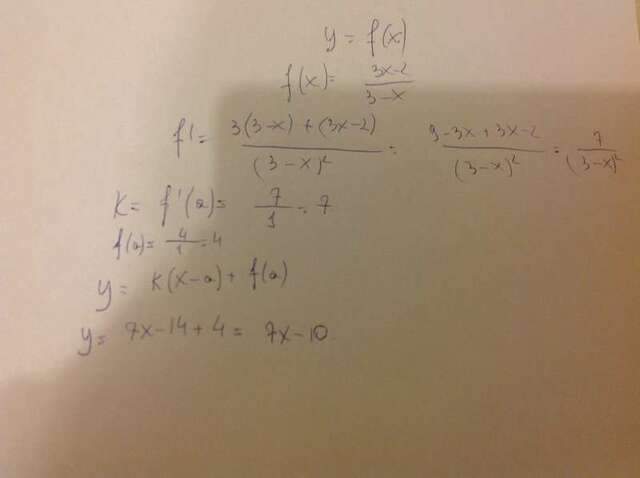 y = f(x)
f(x) = (3x-2)/(3-x)
f' = (3(3-x) + (3x-2))/(3-x)² = (9-3x+3x-2)/(3-x)² = 7/(3-x)²
K = f'(a) = 7/1 = 7
f(a) = 4/1 = 4
y = K(x-a) + f(a)
y = 7x-14+4 = 7x-10